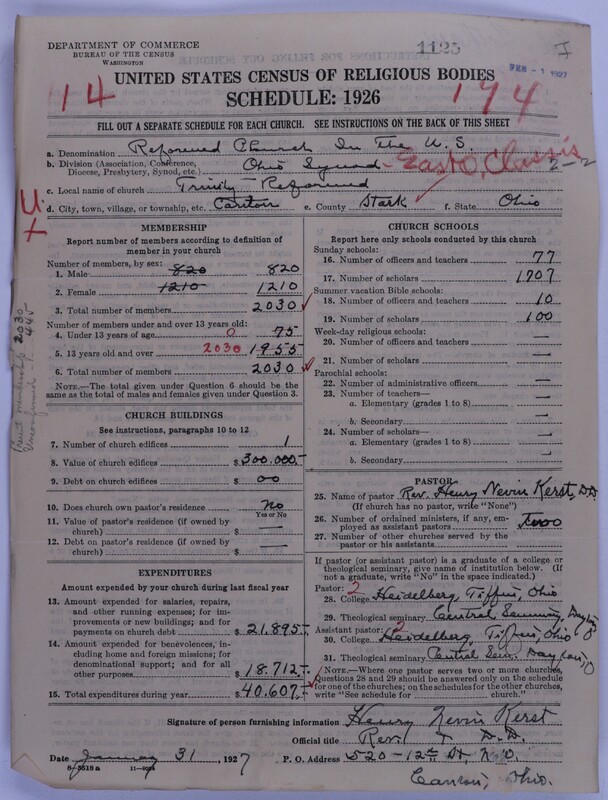 DEPARTMENT OF COMMERCE
BUREAU OF THE CENSUS
WASHINGTON
1125
I
FEB - 1 1927
UNITED STATES CENSUS OF RELIGIOUS BODIES
SCHEDULE: 1926
114
174
FILL OUT A SEPARATE SCHEDULE FOR EACH CHURCH. SEE INSTRUCTIONS ON THE BACK OF THIS SHEET
a. Denomination Reformed Church In The U.S.
b. Division (Association, Conference, Diocese, Presbytery, Synod, etc.) Ohio Synod - East O. Classis
2-2
c. Local name of church Trinity Reformed
d. City, town, village, or township, etc. Canton e. County Stark f. State Ohio
U
MEMBERSHIP
Report number of members according to definition of member in your church
Number of members, by sex:
1. Male 820 820
2. Female 1210 1210
3. Total number of members 2030
Number of members under and over 13 years old:
4. Under 13 years of age 0 75
5. 13 years old and over 2030 1955
6. Total number of members 2030
NOTE.—The total given under Question 6 should be the same as the total of males and females given under Question 3.
2030
CHURCH BUILDINGS
See instructions, paragraphs 10 to 12
7. Number of church edifices 1
8. Value of church edifices $ 300.000.-
9. Debt on church edifices $ 00
10. Does church own pastor's residence No
Yes or No
11. Value of pastor's residence (if owned by church) $ —
12. Debt on pastor's residence (if owned by church) $ —
EXPENDITURES
Amount expended by your church during last fiscal year
13. Amount expended for salaries, repairs, and other running expenses; for improvements or new buildings; and for payments on church debt $ 21.895.-
14. Amount expended for benevolences, including home and foreign missions; for denominational support; and for all other purposes $ 18.712.-
15. Total expenditures during year $ 40.607.-
CHURCH SCHOOLS
Report here only schools conducted by this church
Sunday schools:
16. Number of officers and teachers 77
17. Number of scholars 1707
Summer vacation Bible schools:
18. Number of officers and teachers 10
19. Number of scholars 100
Week-day religious schools:
20. Number of officers and teachers —
21. Number of scholars —
Parochial schools:
22. Number of administrative officers —
23. Number of teachers—
a. Elementary (grades 1 to 8) —
b. Secondary —
24. Number of scholars—
a. Elementary (grades 1 to 8) —
b. Secondary —
PASTOR
25. Name of pastor Rev. Henry Nevin Kerst, D.D.
(If church has no pastor, write "None")
26. Number of ordained ministers, if any, employed as assistant pastors Two
27. Number of other churches served by the pastor or his assistants
If pastor (or assistant pastor) is a graduate of a college or theological seminary, give name of institution below. (If not a graduate, write "No" in the space indicated.)
Pastor: 2
28. College Heidelberg, Tiffin, Ohio
29. Theological seminary Central Seminary, Dayton O
Assistant pastor: 2
30. College Heidelberg, Tiffin, Ohio
31. Theological seminary Central Sem. Dayton, O
NOTE—Where one pastor serves two or more churches, Questions 28 and 29 should be answered only on the schedule for one of the churches; on the schedules for the other churches, write "See schedule for church."
Signature of person furnishing information Henry Nevin Kerst
Official title Rev. & D.D.
Date January 31, 1927 P. O. Address 520 - 12th St, N.O.
8-3518a 11-9024
Canton, Ohio.